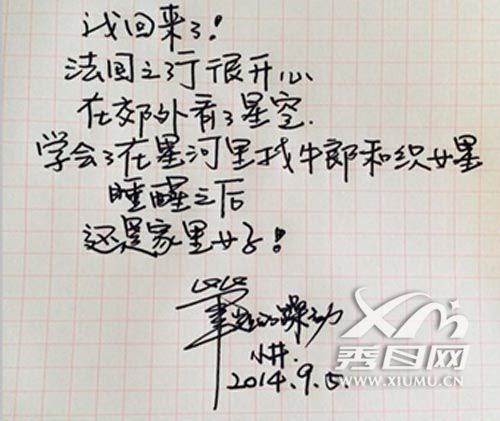 我回来了!
法国之行很开心
在郊外看了星空.
学会了在星河里找牛郎和织女星
睡醒之后
还是家里好!
笔尖的躁动
小井.
2014.9.5.
XM
秀目网
WWW.XIUMU.CN